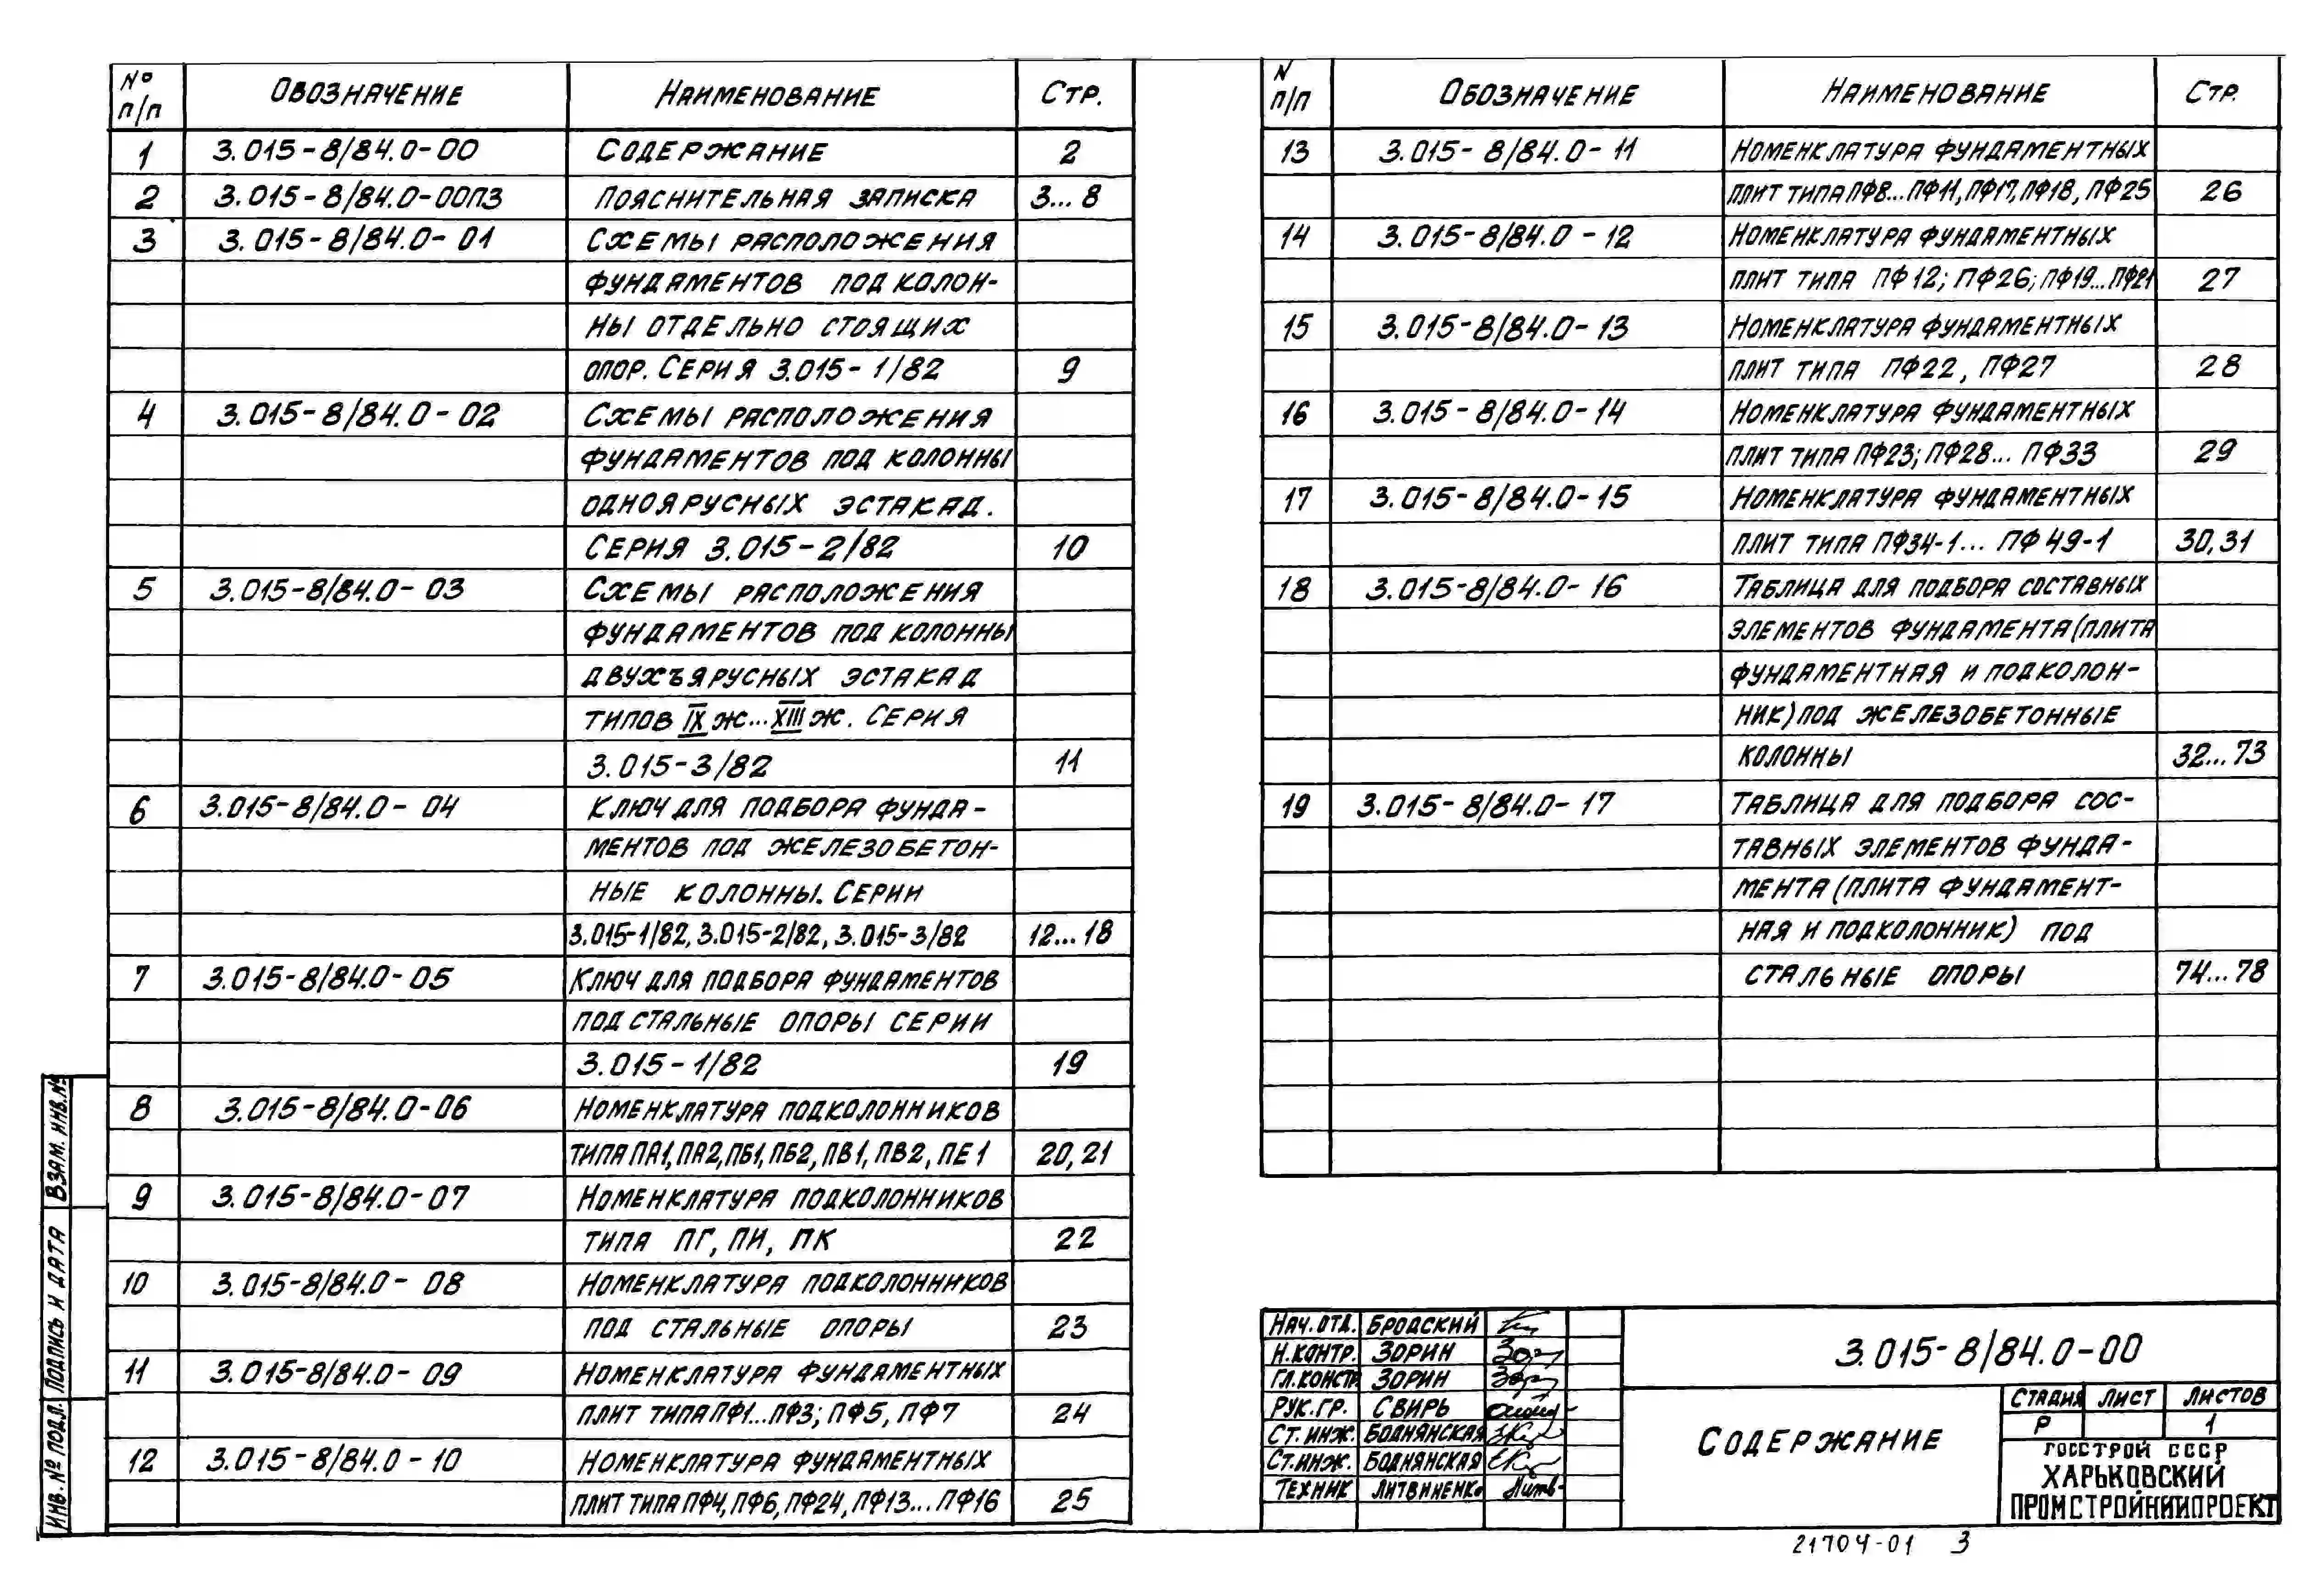 № п/п ОБОЗНАЧЕНИЕ НАИМЕНОВАНИЕ СТР.
1 3.015-8/84.0-00 СОДЕРЖАНИЕ 2
2 3.015-8/84.0-00ПЗ ПОЯСНИТЕЛЬНАЯ ЗАПИСКА 3...8
3 3.015-8/84.0-01 СХЕМЫ РАСПОЛОЖЕНИЯ
ФУНДАМЕНТОВ ПОД КОЛОН-
НЫ ОТДЕЛЬНО СТОЯЩИХ
ОПОР. СЕРИЯ 3.015-1/82 9
4 3.015-8/84.0-02 СХЕМЫ РАСПОЛОЖЕНИЯ
ФУНДАМЕНТОВ ПОД КОЛОННЫ
ОДНОЯРУСНЫХ ЭСТАКАД.
СЕРИЯ 3.015-2/82 10
5 3.015-8/84.0-03 СХЕМЫ РАСПОЛОЖЕНИЯ
ФУНДАМЕНТОВ ПОД КОЛОННЫ
ДВУХЪЯРУСНЫХ ЭСТАКАД
ТИПОВ IX Ж...XIII Ж. СЕРИЯ
3.015-3/82 11
6 3.015-8/84.0-04 КЛЮЧ ДЛЯ ПОДБОРА ФУНДА-
МЕНТОВ ПОД ЖЕЛЕЗОБЕТОН-
НЫЕ КОЛОННЫ. СЕРИИ
3.015-1/82, 3.015-2/82, 3.015-3/82 12...18
7 3.015-8/84.0-05 КЛЮЧ ДЛЯ ПОДБОРА ФУНДАМЕНТОВ
ПОД СТАЛЬНЫЕ ОПОРЫ СЕРИИ
3.015-1/82 19
8 3.015-8/84.0-06 НОМЕНКЛАТУРА ПОДКОЛОННИКОВ
ТИПА ПА1, ПА2, ПБ1, ПБ2, ПВ1, ПВ2, ПЕ1 20, 21
9 3.015-8/84.0-07 НОМЕНКЛАТУРА ПОДКОЛОННИКОВ
ТИПА ПГ, ПИ, ПК 22
10 3.015-8/84.0-08 НОМЕНКЛАТУРА ПОДКОЛОННИКОВ
ПОД СТАЛЬНЫЕ ОПОРЫ 23
11 3.015-8/84.0-09 НОМЕНКЛАТУРА ФУНДАМЕНТНЫХ
ПЛИТ ТИПА ПФ1...ПФ3; ПФ5, ПФ7 24
12 3.015-8/84.0-10 НОМЕНКЛАТУРА ФУНДАМЕНТНЫХ
ПЛИТ ТИПА ПФ4, ПФ6, ПФ24, ПФ13...ПФ16 25
N п/п ОБОЗНАЧЕНИЕ НАИМЕНОВАНИЕ СТР.
13 3.015-8/84.0-11 НОМЕНКЛАТУРА ФУНДАМЕНТНЫХ
ПЛИТ ТИПА ПФ8...ПФ11, ПФ17, ПФ18, ПФ25 26
14 3.015-8/84.0-12 НОМЕНКЛАТУРА ФУНДАМЕНТНЫХ
ПЛИТ ТИПА ПФ12; ПФ26; ПФ19...ПФ21 27
15 3.015-8/84.0-13 НОМЕНКЛАТУРА ФУНДАМЕНТНЫХ
ПЛИТ ТИПА ПФ22, ПФ27 28
16 3.015-8/84.0-14 НОМЕНКЛАТУРА ФУНДАМЕНТНЫХ
ПЛИТ ТИПА ПФ23; ПФ28... ПФ33 29
17 3.015-8/84.0-15 НОМЕНКЛАТУРА ФУНДАМЕНТНЫХ
ПЛИТ ТИПА ПФ34-1... ПФ49-1 30, 31
18 3.015-8/84.0-16 ТАБЛИЦА ДЛЯ ПОДБОРА СОСТАВНЫХ
ЭЛЕМЕНТОВ ФУНДАМЕНТА (ПЛИТА
ФУНДАМЕНТНАЯ И ПОДКОЛОН-
НИК) ПОД ЖЕЛЕЗОБЕТОННЫЕ
КОЛОННЫ 32...73
19 3.015-8/84.0-17 ТАБЛИЦА ДЛЯ ПОДБОРА СОС-
ТАВНЫХ ЭЛЕМЕНТОВ ФУНДА-
МЕНТА (ПЛИТА ФУНДАМЕНТ-
НАЯ И ПОДКОЛОННИК) ПОД
СТАЛЬНЫЕ ОПОРЫ 74...78
НАЧ. ОТД. БРОДСКИЙ
Н. КОНТР. ЗОРИН
ГЛ. КОНСТР ЗОРИН
РУК. ГР. СВИРЬ
СТ. ИНЖ. БОДНЯНСКАЯ
СТ. ИНЖ. БОДНЯНСКАЯ
ТЕХНИК ЛИТВИНЕНКО
3.015-8/84.0-00
СОДЕРЖАНИЕ
СТАДИЯ ЛИСТ ЛИСТОВ
Р 1
ГОССТРОЙ СССР
ХАРЬКОВСКИЙ
ПРОМСТРОЙНИИПРОЕКТ
21704-01 3
ИНВ. № ПОДЛ. ПОДПИСЬ И ДАТА ВЗАМ. ИНВ. №